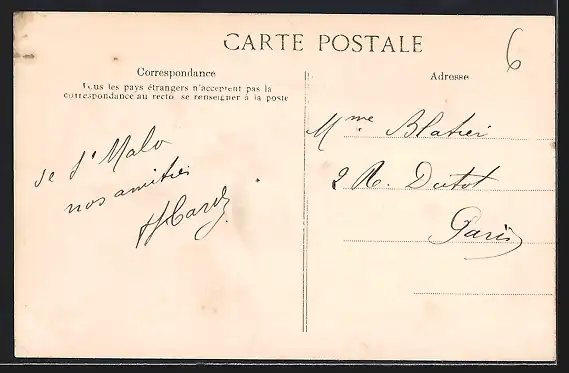 CARTE POSTALE
6
Correspondance
Tous les pays étrangers n'acceptent pas la
correspondance au recto se renseigner à la poste
Adresse
de St Malo
nos amitiés
Mme Blatier
2 R. Dutot
Paris